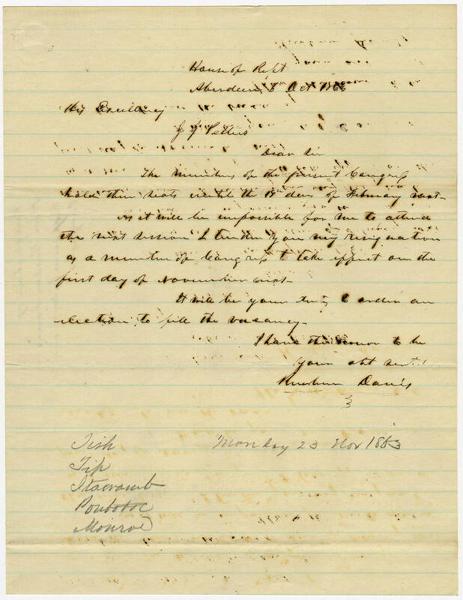 House of Rept
Aberdeen 8 Oct 1863
His Excellency
J J Pettus
Dear Sir
The members of the present Congress
hold their seats until the 18 day of February next.
As it will be impossible for me to attend
the next session I tender you my resignation
as a member of Congress to take effect on the
first day of November next.
It will be your duty to order an
election to fill the vacancy.
I have the honor to be
Your obt servt
Reuben Davis
Tish
Tip
Itawamb
Pontotoc
Monroe
Monday 23 Nov 1863